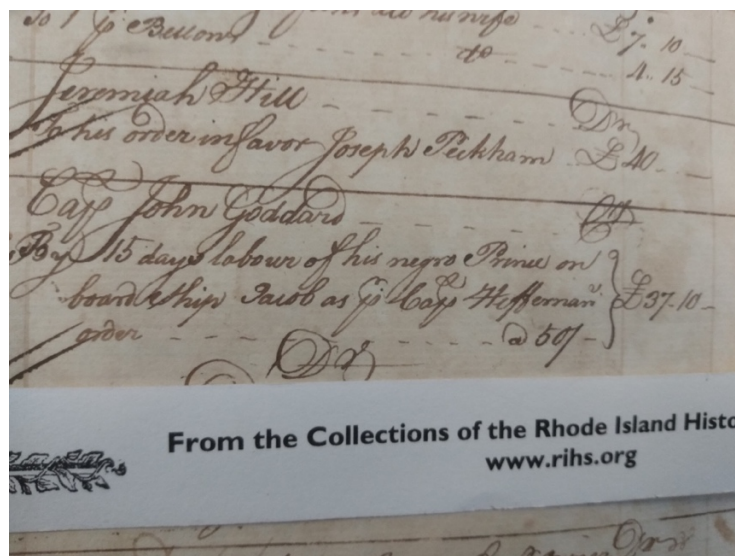 To his wife
Bellows
do
£ 7.. 10
4.. 15
Jeremiah Hill Dr
To his order in favor Joseph Peckham £ 40
Cap John Goddard Cr
By 15 days labour of his negro Prince on
board Ship Jacob as p Cap Heffernan's £ 37.10
order @ 50/
Dr
From the Collections of the Rhode Island Histo
www.rihs.org